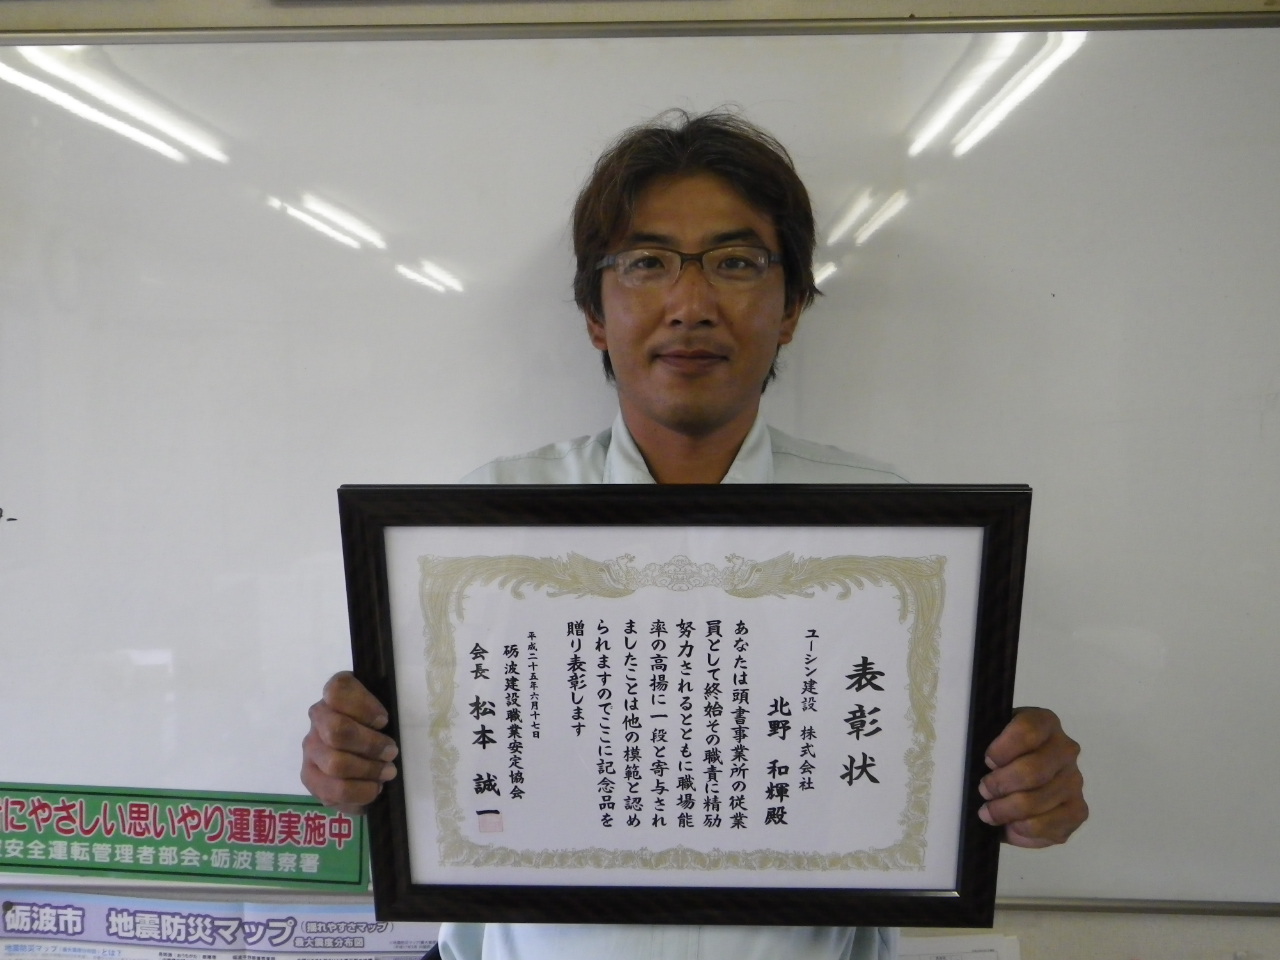 表彰状
ユーシン建設　株式会社
北野　和輝殿
あなたは頭書事業所の従業
員として終始その職責に精励
努力されるとともに職場能
率の高揚に一段と寄与され
ましたことは他の模範と認め
られますのでここに記念品を
贈り表彰します
平成二十五年六月十七日
砺波建設職業安定協会
会長　松本　誠一
にやさしい思いやり運動実施中
安全運転管理者部会・砺波警察署
砺波市　地震防災マップ
(揺れやすさマップ)
最大震度分布図